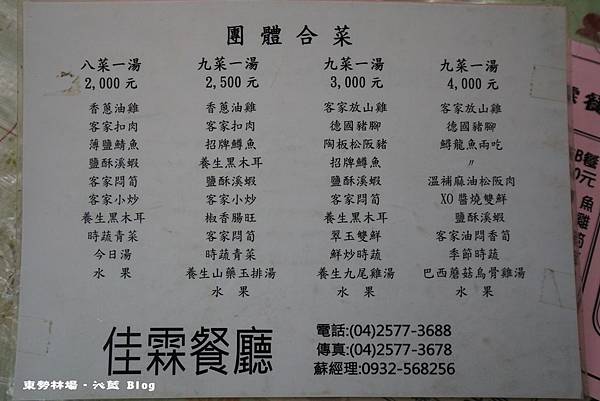 團體合菜
八菜一湯
2,000元
香蔥油雞
客家扣肉
薄鹽鯖魚
鹽酥溪蝦
客家悶筍
客家小炒
養生黑木耳
時蔬青菜
今日湯
水果
九菜一湯
2,500元
香蔥油雞
客家扣肉
招牌鱒魚
養生黑木耳
鹽酥溪蝦
客家小炒
椒香腸旺
客家悶筍
時蔬青菜
養生山藥玉排湯
水果
九菜一湯
3,000元
客家放山雞
德國豬腳
陶板松阪豬
招牌鱒魚
鹽酥溪蝦
客家悶筍
養生黑木耳
翠玉雙鮮
鮮炒時蔬
養生九尾雞湯
水果
九菜一湯
4,000元
客家放山雞
德國豬腳
鱘龍魚兩吃
〃
溫補麻油松阪肉
XO醬燒雙鮮
鹽酥溪蝦
客家油悶香筍
季節時蔬
巴西蘑菇烏骨雞湯
水果
佳霖餐廳
電話:(04)2577-3688
傳真:(04)2577-3678
蘇經理:0932-568256
餐
B餐
0元
魚
雞
筍
東勢林場‧沁藍 Blog